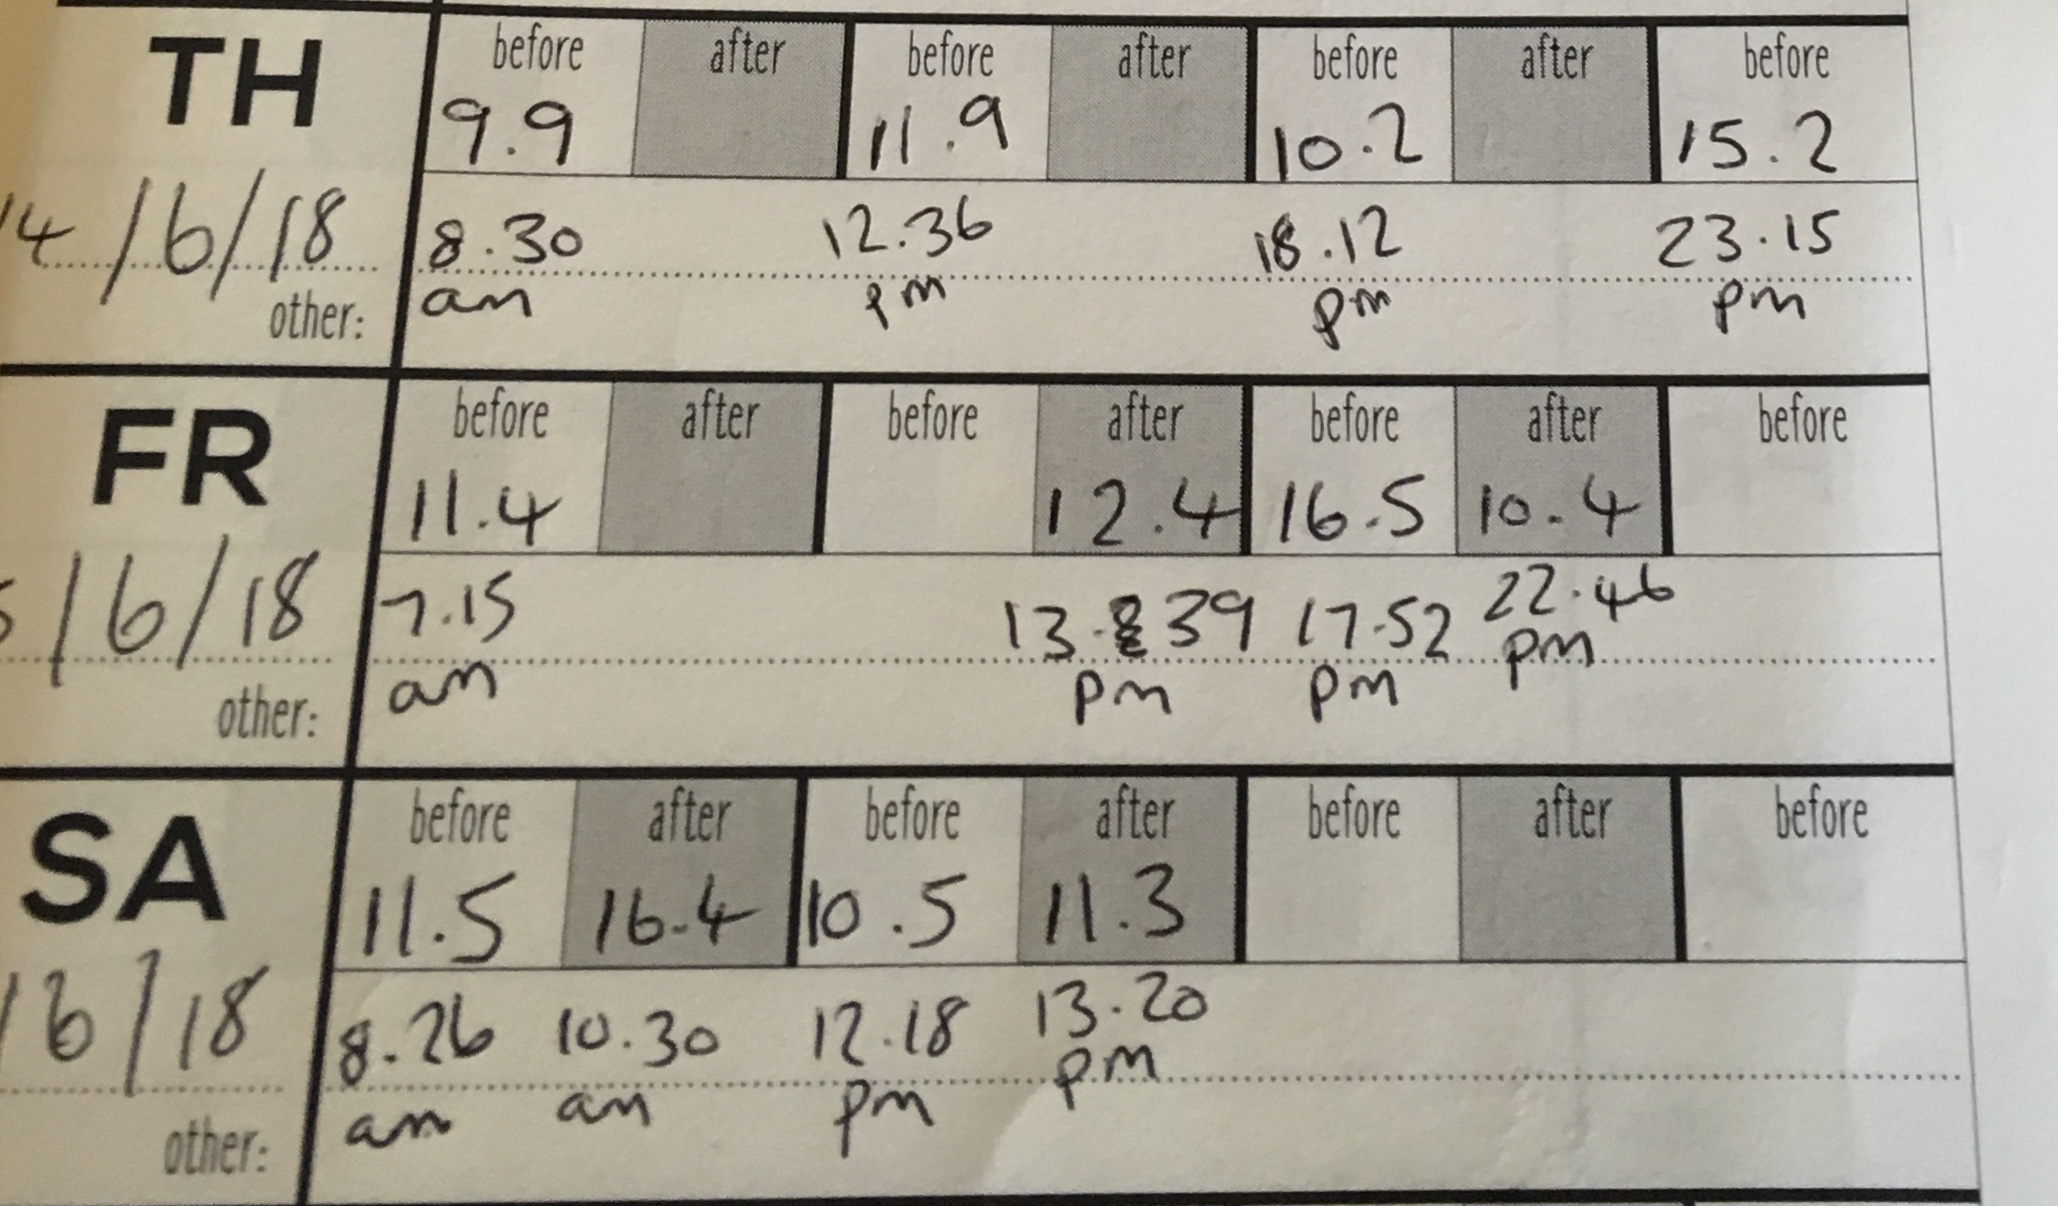 TH before after before after before after before
9.9 11.9 10.2 15.2
14/6/18 8.30 12.36 18.12 23.15
other: am pm pm pm
FR before after before after before after before
11.4 12.4 16.5 10.4
/6/18 7.15 13.39 17.52 22.46
other: am pm pm pm
SA before after before after before after before
11.5 16.4 10.5 11.3
/6/18 8.26 10.30 12.18 13.20
other: am am pm pm